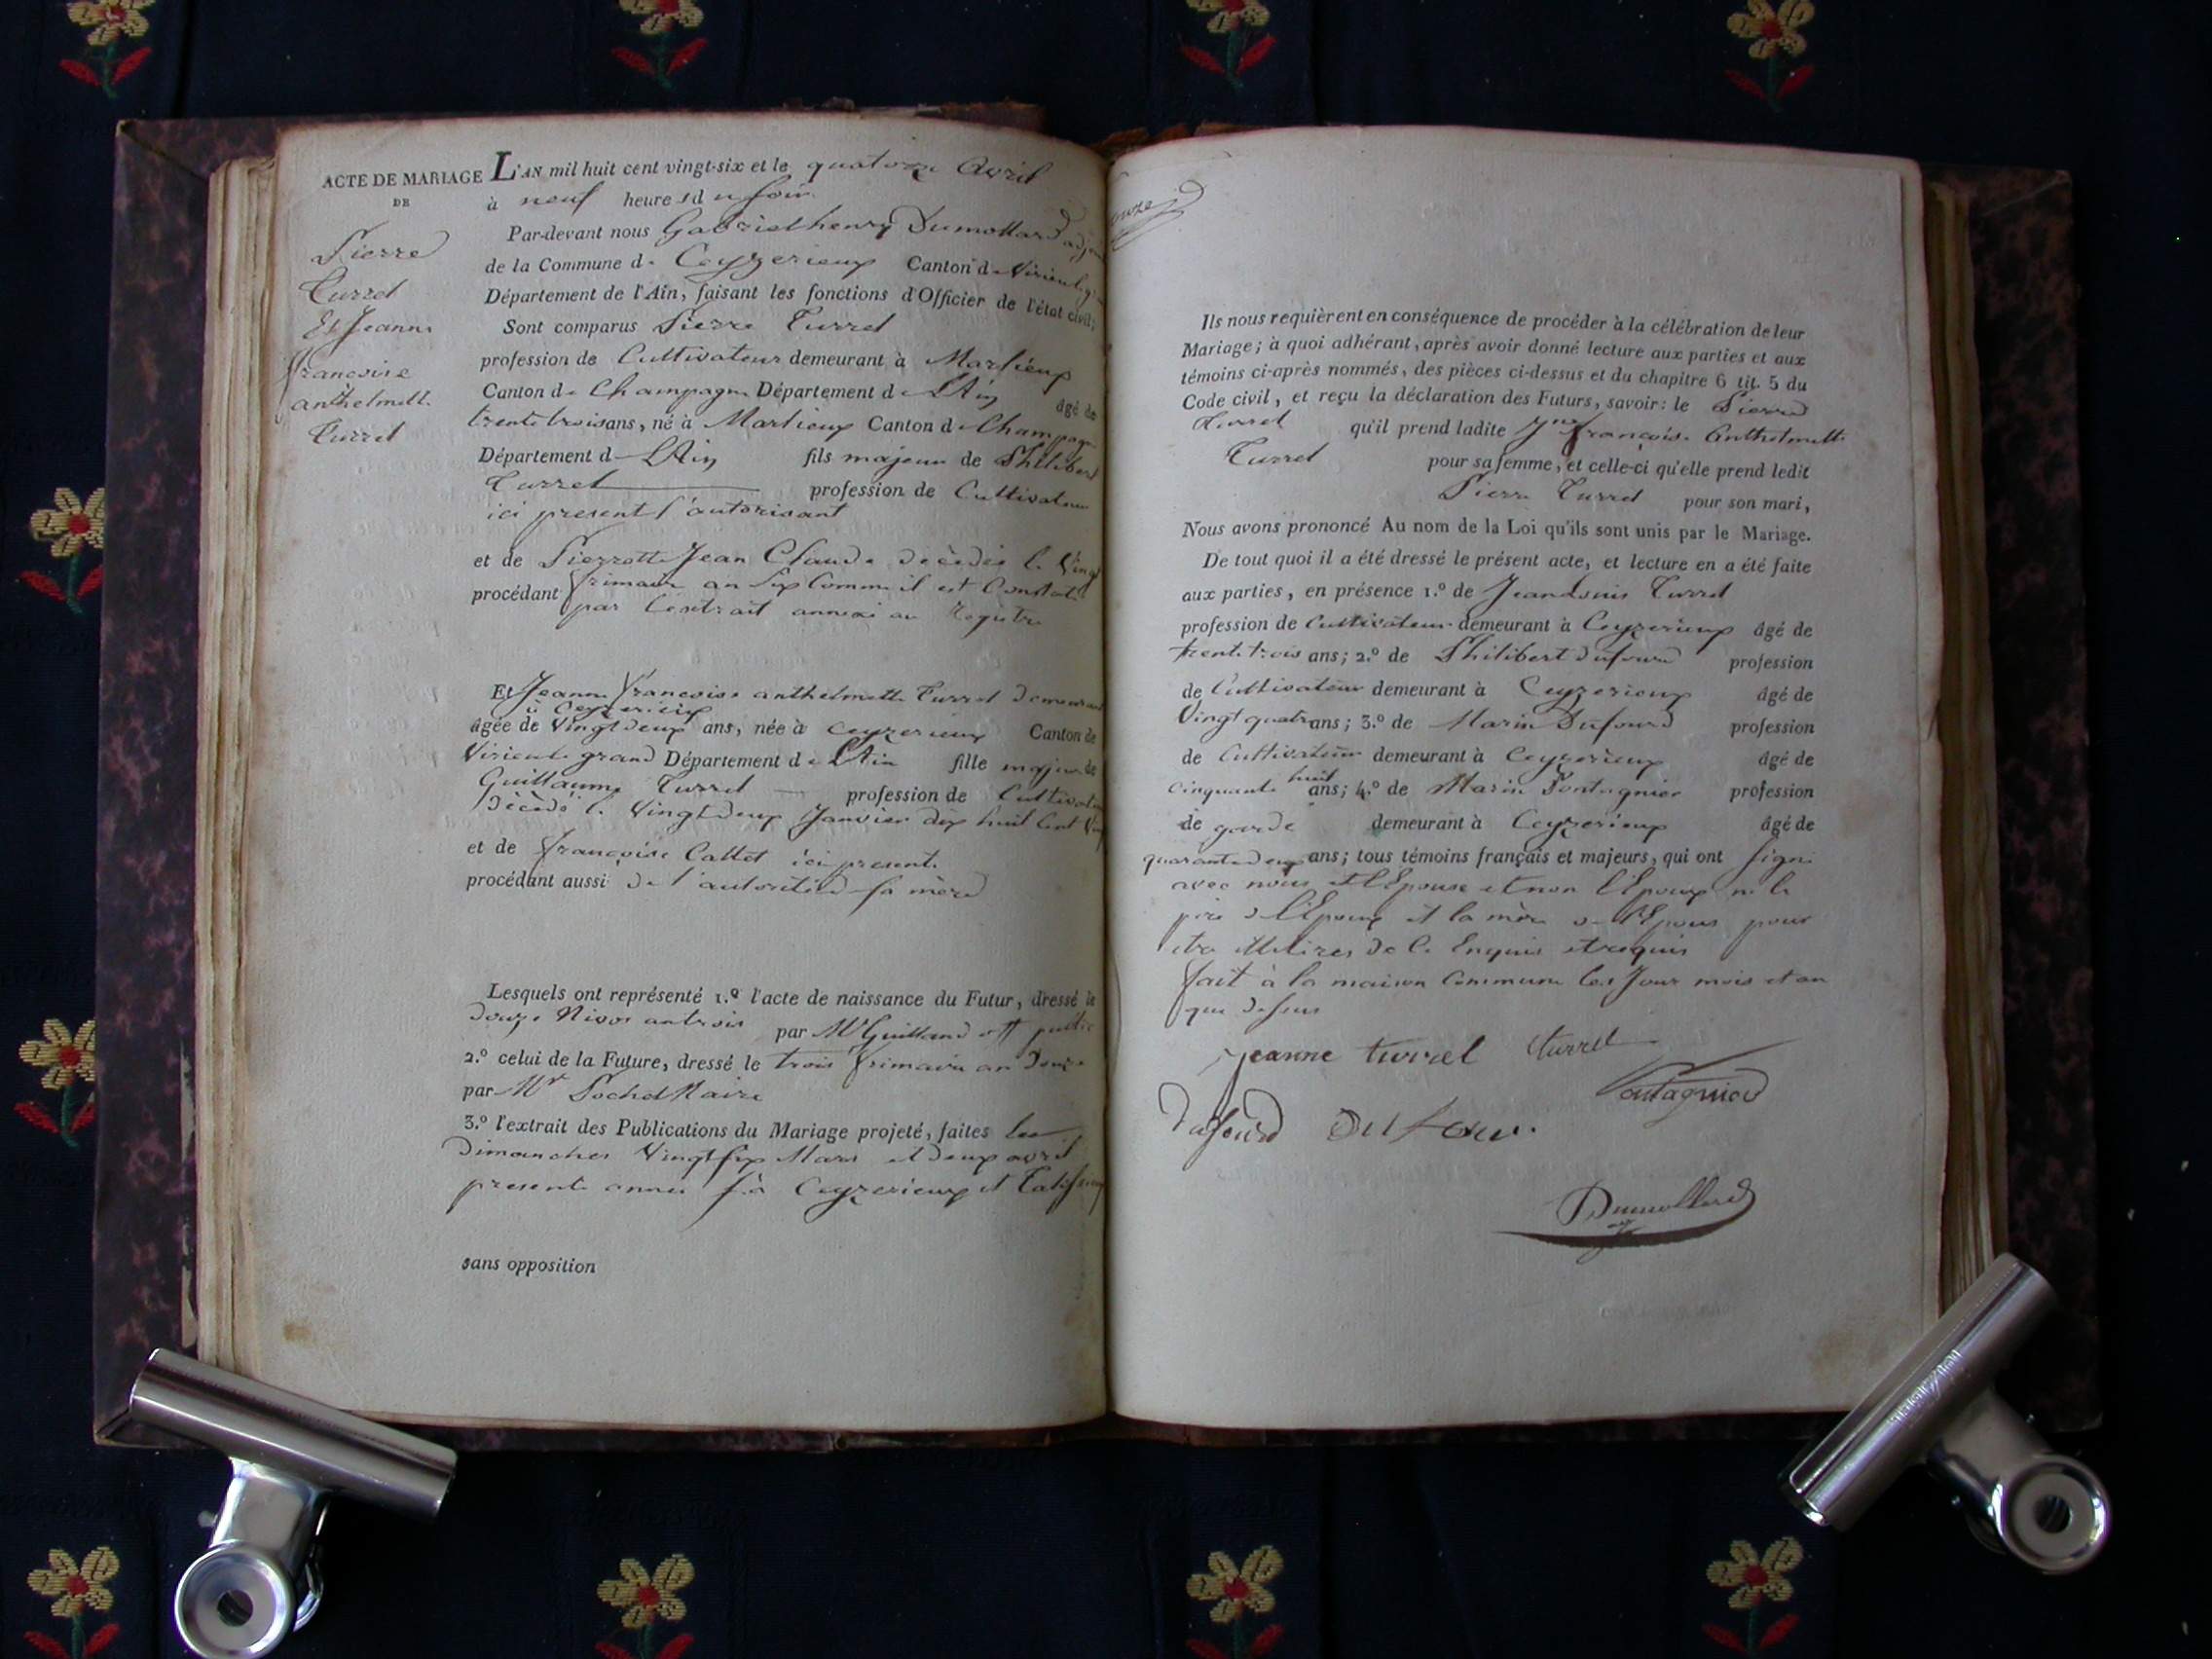 ACTE DE MARIAGE
DE
Pierre
Turrel
Et Jeanne
francoise
anthelmette
Turrel
L'AN mil huit cent vingt-six et le quatorze Avril
à neuf heures du soir
Par-devant nous Gabriel henry Dumollard adjoint
de la Commune de Ceyzerieux Canton de Virieu le g
Département de l'Ain, faisant les fonctions d'Officier de l'état civil;
Sont comparus Pierre Turrel
profession de Cultivateur demeurant à Marlieux
Canton de Champagne Département de L'Ain âgé de
trente trois ans, né à Marlieux Canton de Champagne
Département de L'Ain fils majeur de Philibert
Turrel profession de Cultivateur
ici present l'autorisant
et de Pierrotte Jean Claude décédée le Vingt
procédant frimaire an Six Comme il est Constaté
par l'extrait annexé au Registre
Et Jeanne francoise anthelmette Turrel demeurant
à Ceyzerieux
âgée de Vingt deux ans, née à Ceyzerieux Canton de
Virieu le grand Département de L'Ain fille majeure de
Guillaume Turrel profession de Cultivateur
décédé le Vingt deux Janvier dix huit Cent Vin
et de francoise Callet ici presente
procédant aussi de l'autorité de sa mère
Lesquels ont représenté 1.º l'acte de naissance du Futur, dressé le
douze Nivos an trois par Mr Guilland off public
2.º celui de la Future, dressé le trois frimaire an Douze
par Mr Pochet Maire
3.º l'extrait des Publications du Mariage projeté, faites les
Dimanches Vingt six Mars et deux avril
presente année à Ceyzerieux et Talissieu
sans opposition
Ils nous requièrent en conséquence de procéder à la célébration de leur
Mariage; à quoi adhérant, après avoir donné lecture aux parties et aux
témoins ci-après nommés, des pièces ci-dessus et du chapitre 6 tit. 5 du
Code civil, et reçu la déclaration des Futurs, savoir: le Pierre
Turrel qu'il prend ladite Jne françoise Anthelmette
Turrel pour sa femme, et celle-ci qu'elle prend ledit
Pierre Turrel pour son mari,
Nous avons prononcé Au nom de la Loi qu'ils sont unis par le Mariage.
De tout quoi il a été dressé le présent acte, et lecture en a été faite
aux parties, en présence 1.º de Jean Louis Turrel
profession de Cultivateur demeurant à Ceyzerieux âgé de
trente trois ans; 2.º de Philibert dufourd profession
de Cultivateur demeurant à Ceyzerieux âgé de
Vingt quatre ans; 3.º de Marin Dufourd profession
de Cultivateur demeurant à Ceyzerieux âgé de
cinquante huit ans; 4.º de Marin Pontagnier profession
de garde demeurant à Ceyzerieux âgé de
quarante deux ans; tous témoins français et majeurs, qui ont signé
avec nous et l'Epouse et non l'Epoux ni le
père de l'Epoux et la mère de l'Epouse pour
etre illitirés de Ce Enquis et requis
fait à la maison Commune les Jour mois et an
que dessus
jeanne turrel turrel
Pontagnier
Dufourd Dufour
Dumollard